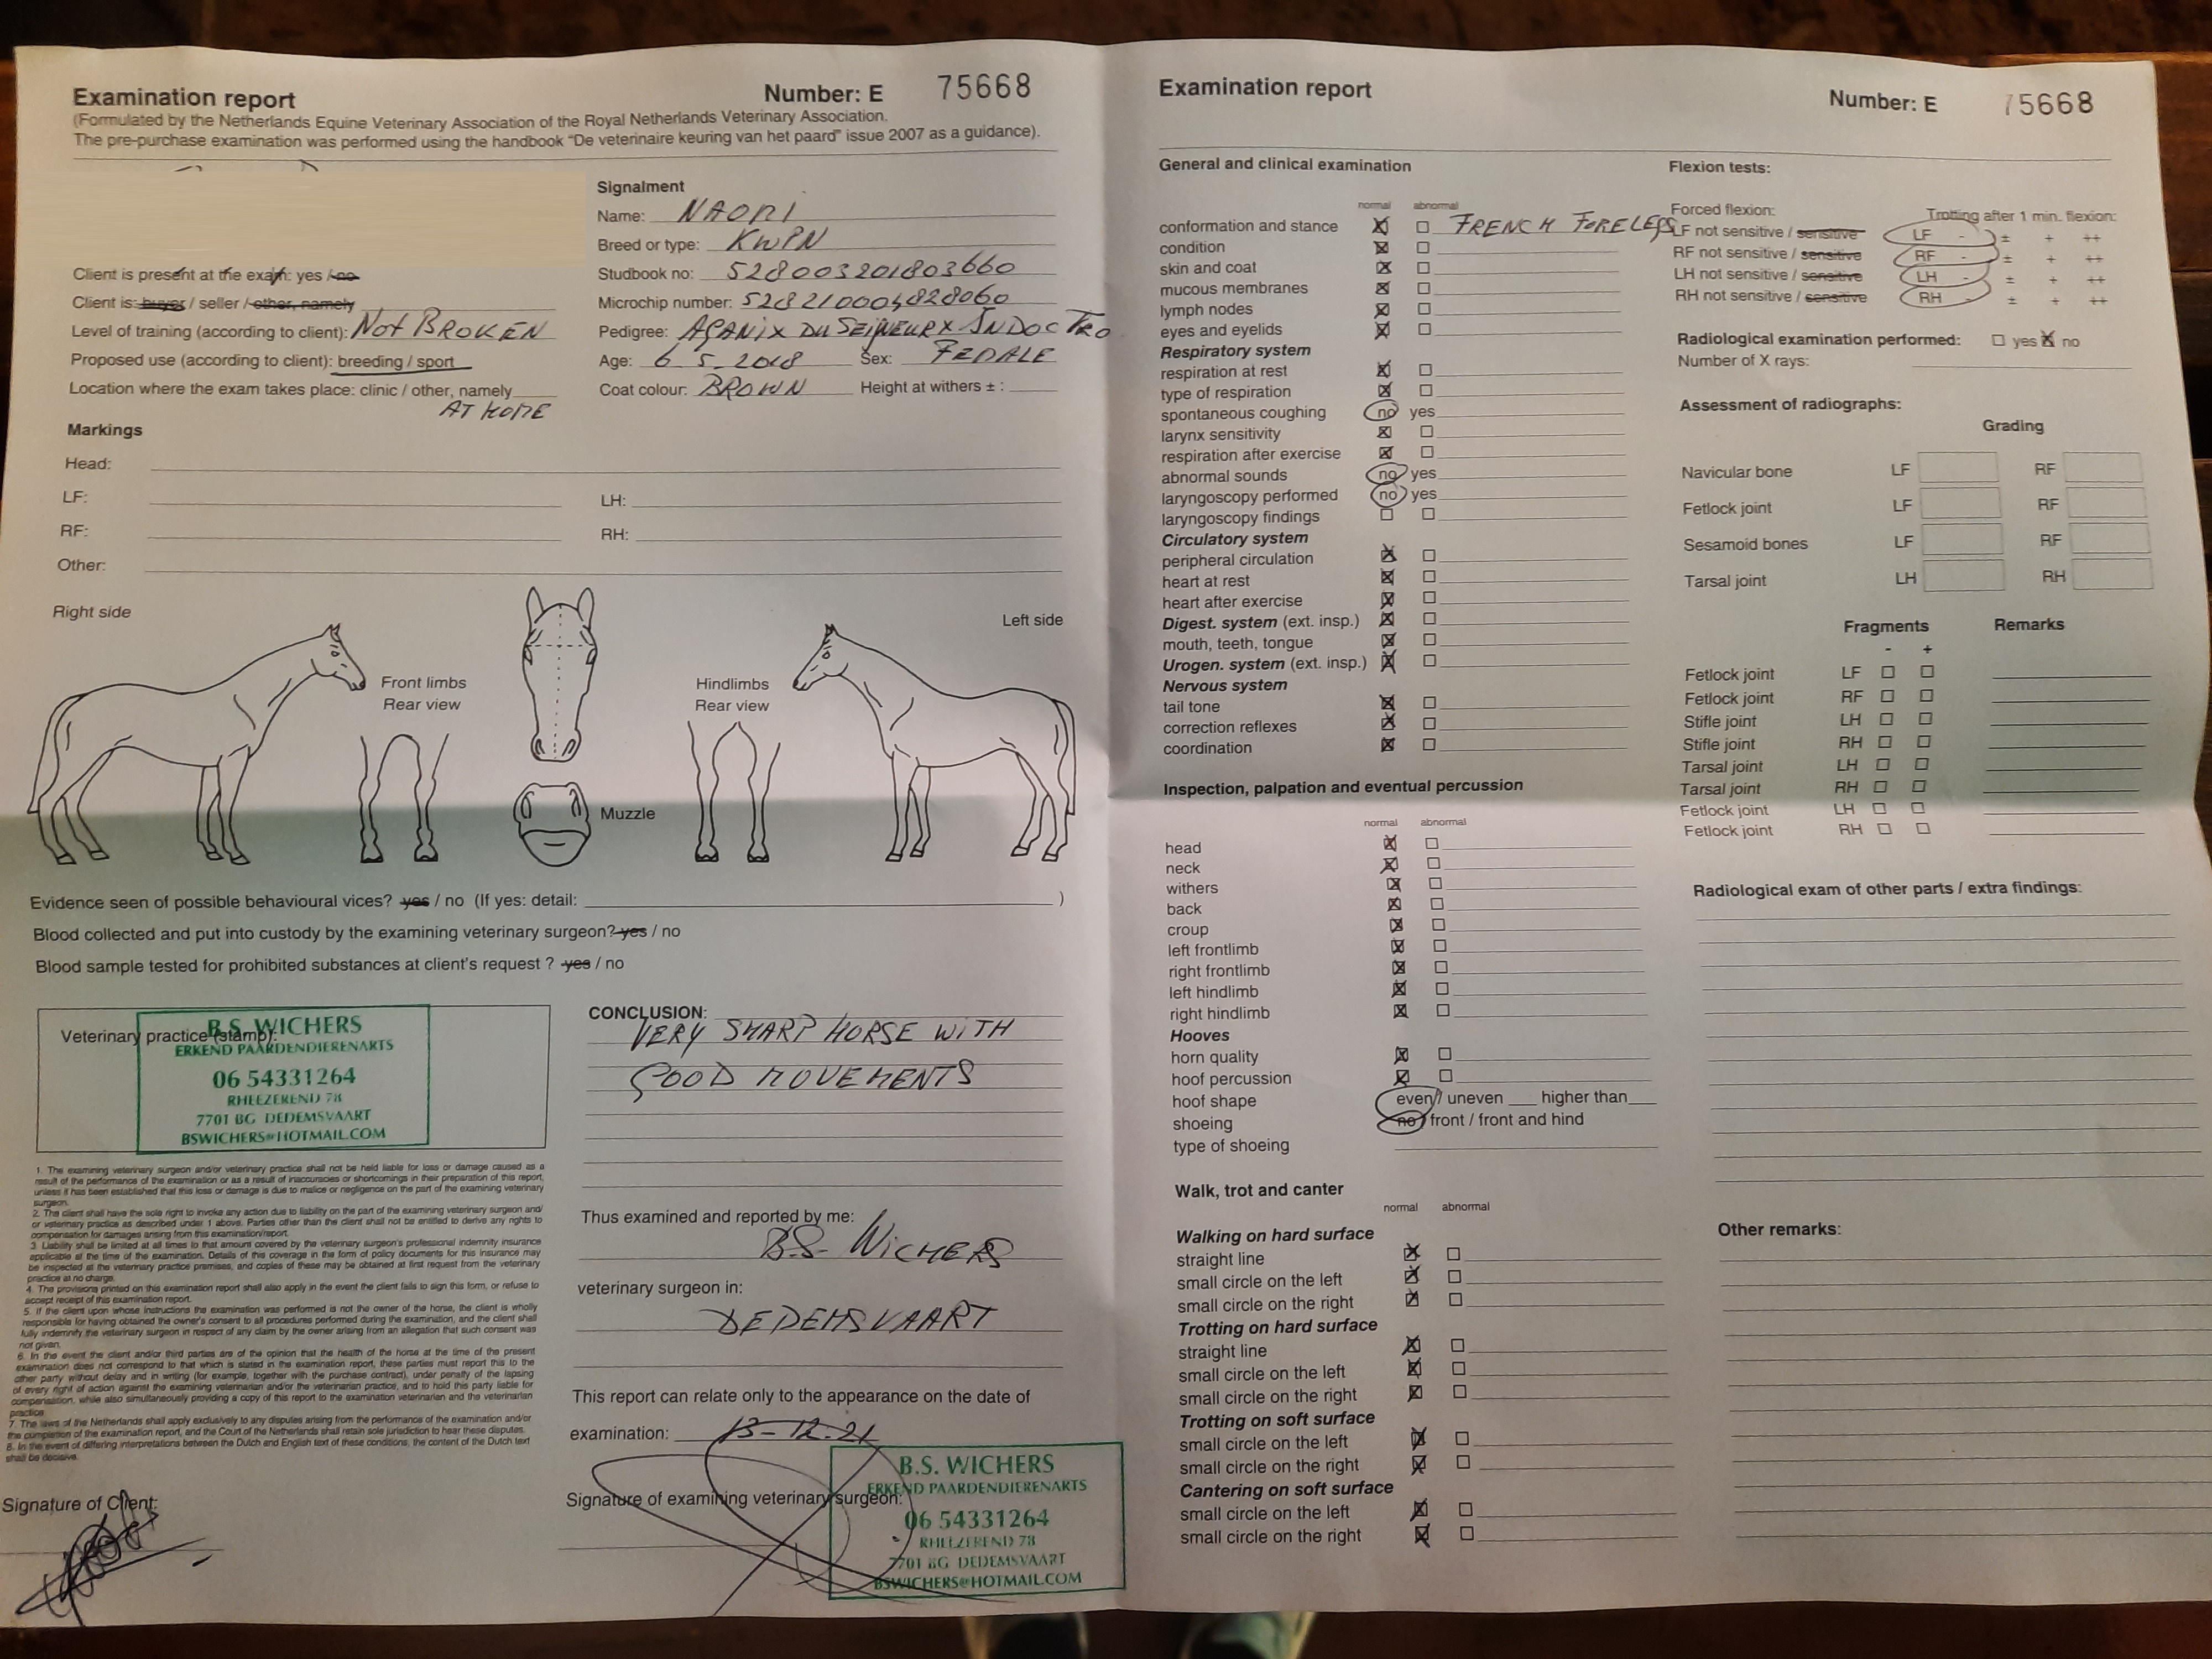 Examination report
Number: E 75668
(Formulated by the Netherlands Equine Veterinary Association of the Royal Netherlands Veterinary Association.
The pre-purchase examination was performed using the handbook "De veterinaire keuring van het paard" issue 2007 as a guidance).
Client is present at the exam: yes / no
Client is: buyer / seller / other, namely
Level of training (according to client): Not BROKEN
Proposed use (according to client): breeding / sport
Location where the exam takes place: clinic / other, namely
AT HOME
Signalment
Name: NAOMI
Breed or type: KWPN
Studbook no: 528003201803660
Microchip number: 528210004828060
Pedigree: AGANIX DU SEIGNEUR X INDOCTRO
Age: 6 5 2018 Sex: FEMALE
Coat colour: BROWN Height at withers ± :
Markings
Head:
LF: LH:
RF: RH:
Other:
Right side
Left side
Front limbs
Rear view
Hindlimbs
Rear view
Muzzle
Evidence seen of possible behavioural vices? yes / no (If yes: detail: )
Blood collected and put into custody by the examining veterinary surgeon? yes / no
Blood sample tested for prohibited substances at client's request ? yes / no
Veterinary practice (stamp):
B.S. WICHERS
ERKEND PAARDENDIERENARTS
06 54331264
RHEEZEREND 78
7701 BG DEDEMSVAART
BSWICHERS@HOTMAIL.COM
1. The examining veterinary surgeon and/or veterinary practice shall not be held liable for loss or damage caused as a
result of the performance of the examination or as a result of inaccuracies or shortcomings in their preparation of this report,
unless it has been established that this loss or damage is due to malice or negligence on the part of the examining veterinary
surgeon.
2. The client shall have the sole right to invoke any action due to liability on the part of the examining veterinary surgeon and/
or veterinary practice as described under 1 above. Parties other than the client shall not be entitled to derive any rights to
compensation for damages arising from this examination/report.
3. Liability shall be limited at all times to that amount covered by the veterinary surgeon's professional indemnity insurance
applicable at the time of the examination. Details of this coverage in the form of policy documents for this insurance may
be inspected at the veterinary practice premises, and copies of these may be obtained at first request from the veterinary
practice at no charge.
4. The provisions printed on this examination report shall also apply in the event the client fails to sign this form, or refuse to
accept receipt of this examination report.
5. If the client upon whose instructions the examination was performed is not the owner of the horse, the client is wholly
responsible for having obtained the owner's consent to all procedures performed during the examination, and the client shall
fully indemnify the veterinary surgeon in respect of any claim by the owner arising from an allegation that such consent was
not given.
6. In the event the client and/or third parties are of the opinion that the health of the horse at the time of the present
examination does not correspond to that which is stated in the examination report, these parties must report this to the
other party without delay and in writing (for example, together with the purchase contract), under penalty of the lapsing
of every right of action against the examining veterinarian and/or the veterinarian practice, and to hold this party liable for
compensation, while also simultaneously providing a copy of this report to the examination veterinarian and the veterinarian
practice.
7. The laws of the Netherlands shall apply exclusively to any disputes arising from the performance of the examination and/or
the completion of the examination report, and the Court of the Netherlands shall retain sole jurisdiction to hear these disputes.
8. In the event of differing interpretations between the Dutch and English text of these conditions, the content of the Dutch text
shall be decisive.
Signature of Client:
CONCLUSION:
VERY SHARP HORSE WITH
GOOD MOVEMENTS
Thus examined and reported by me:
B.S. WICHERS
veterinary surgeon in:
DEDEMSVAART
This report can relate only to the appearance on the date of
examination: 13-12-21
Signature of examining veterinary surgeon:
B.S. WICHERS
ERKEND PAARDENDIERENARTS
06 54331264
RHEEZEREND 78
7701 BG DEDEMSVAART
BSWICHERS@HOTMAIL.COM
Examination report
Number: E 75668
General and clinical examination
normal abnormal
conformation and stance FRENCH FORELEGS
condition
skin and coat
mucous membranes
lymph nodes
eyes and eyelids
Respiratory system
respiration at rest
type of respiration
spontaneous coughing no yes
larynx sensitivity
respiration after exercise
abnormal sounds no yes
laryngoscopy performed no yes
laryngoscopy findings
Circulatory system
peripheral circulation
heart at rest
heart after exercise
Digest. system (ext. insp.)
mouth, teeth, tongue
Urogen. system (ext. insp.)
Nervous system
tail tone
correction reflexes
coordination
Inspection, palpation and eventual percussion
normal abnormal
head
neck
withers
back
croup
left frontlimb
right frontlimb
left hindlimb
right hindlimb
Hooves
horn quality
hoof percussion
hoof shape even / uneven higher than
shoeing no / front / front and hind
type of shoeing
Walk, trot and canter
normal abnormal
Walking on hard surface
straight line
small circle on the left
small circle on the right
Trotting on hard surface
straight line
small circle on the left
small circle on the right
Trotting on soft surface
small circle on the left
small circle on the right
Cantering on soft surface
small circle on the left
small circle on the right
Flexion tests:
Forced flexion: Trotting after 1 min. flexion:
LF not sensitive / sensitive LF - ± + ++
RF not sensitive / sensitive RF - ± + ++
LH not sensitive / sensitive LH - ± + ++
RH not sensitive / sensitive RH - ± + ++
Radiological examination performed: yes no
Number of X rays:
Assessment of radiographs:
Grading
Navicular bone LF RF
Fetlock joint LF RF
Sesamoid bones LF RF
Tarsal joint LH RH
Fragments Remarks
- +
Fetlock joint LF
Fetlock joint RF
Stifle joint LH
Stifle joint RH
Tarsal joint LH
Tarsal joint RH
Fetlock joint LH
Fetlock joint RH
Radiological exam of other parts / extra findings:
Other remarks: